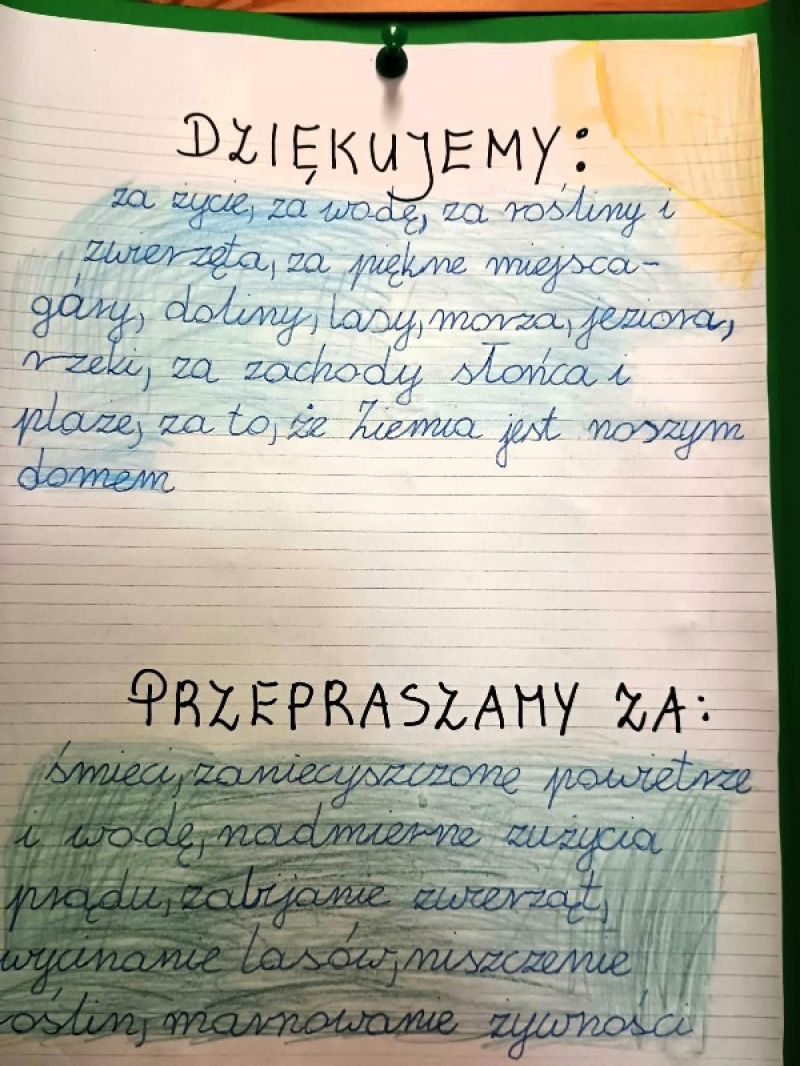 DZIĘKUJEMY:
za życie, za wodę, za rośliny i
zwierzęta, za piękne miejsca-
góry, doliny, lasy, morza, jeziora,
rzeki, za zachody słońca i
plaże, za to, że Ziemia jest naszym
domem
PRZEPRASZAMY ZA:
śmieci, zaniecyszczone powietrze
i wodę, nadmierne zużycia
prądu, zabijanie zwierząt,
wycinanie lasów, niszczenie
roślin, marnowanie żywności